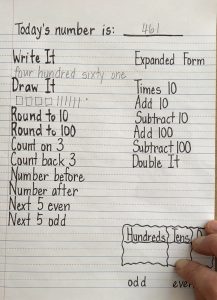 Today's number is: 461
Write It
four hundred sixty one
Draw It
Round to 10
Round to 100
Count on 3
Count back 3
Number before
Number after
Next 5 even
Next 5 odd
Expanded Form
Times 10
Add 10
Subtract 10
Add 100
Subtract 100
Double It
Hundreds Tens
odd even